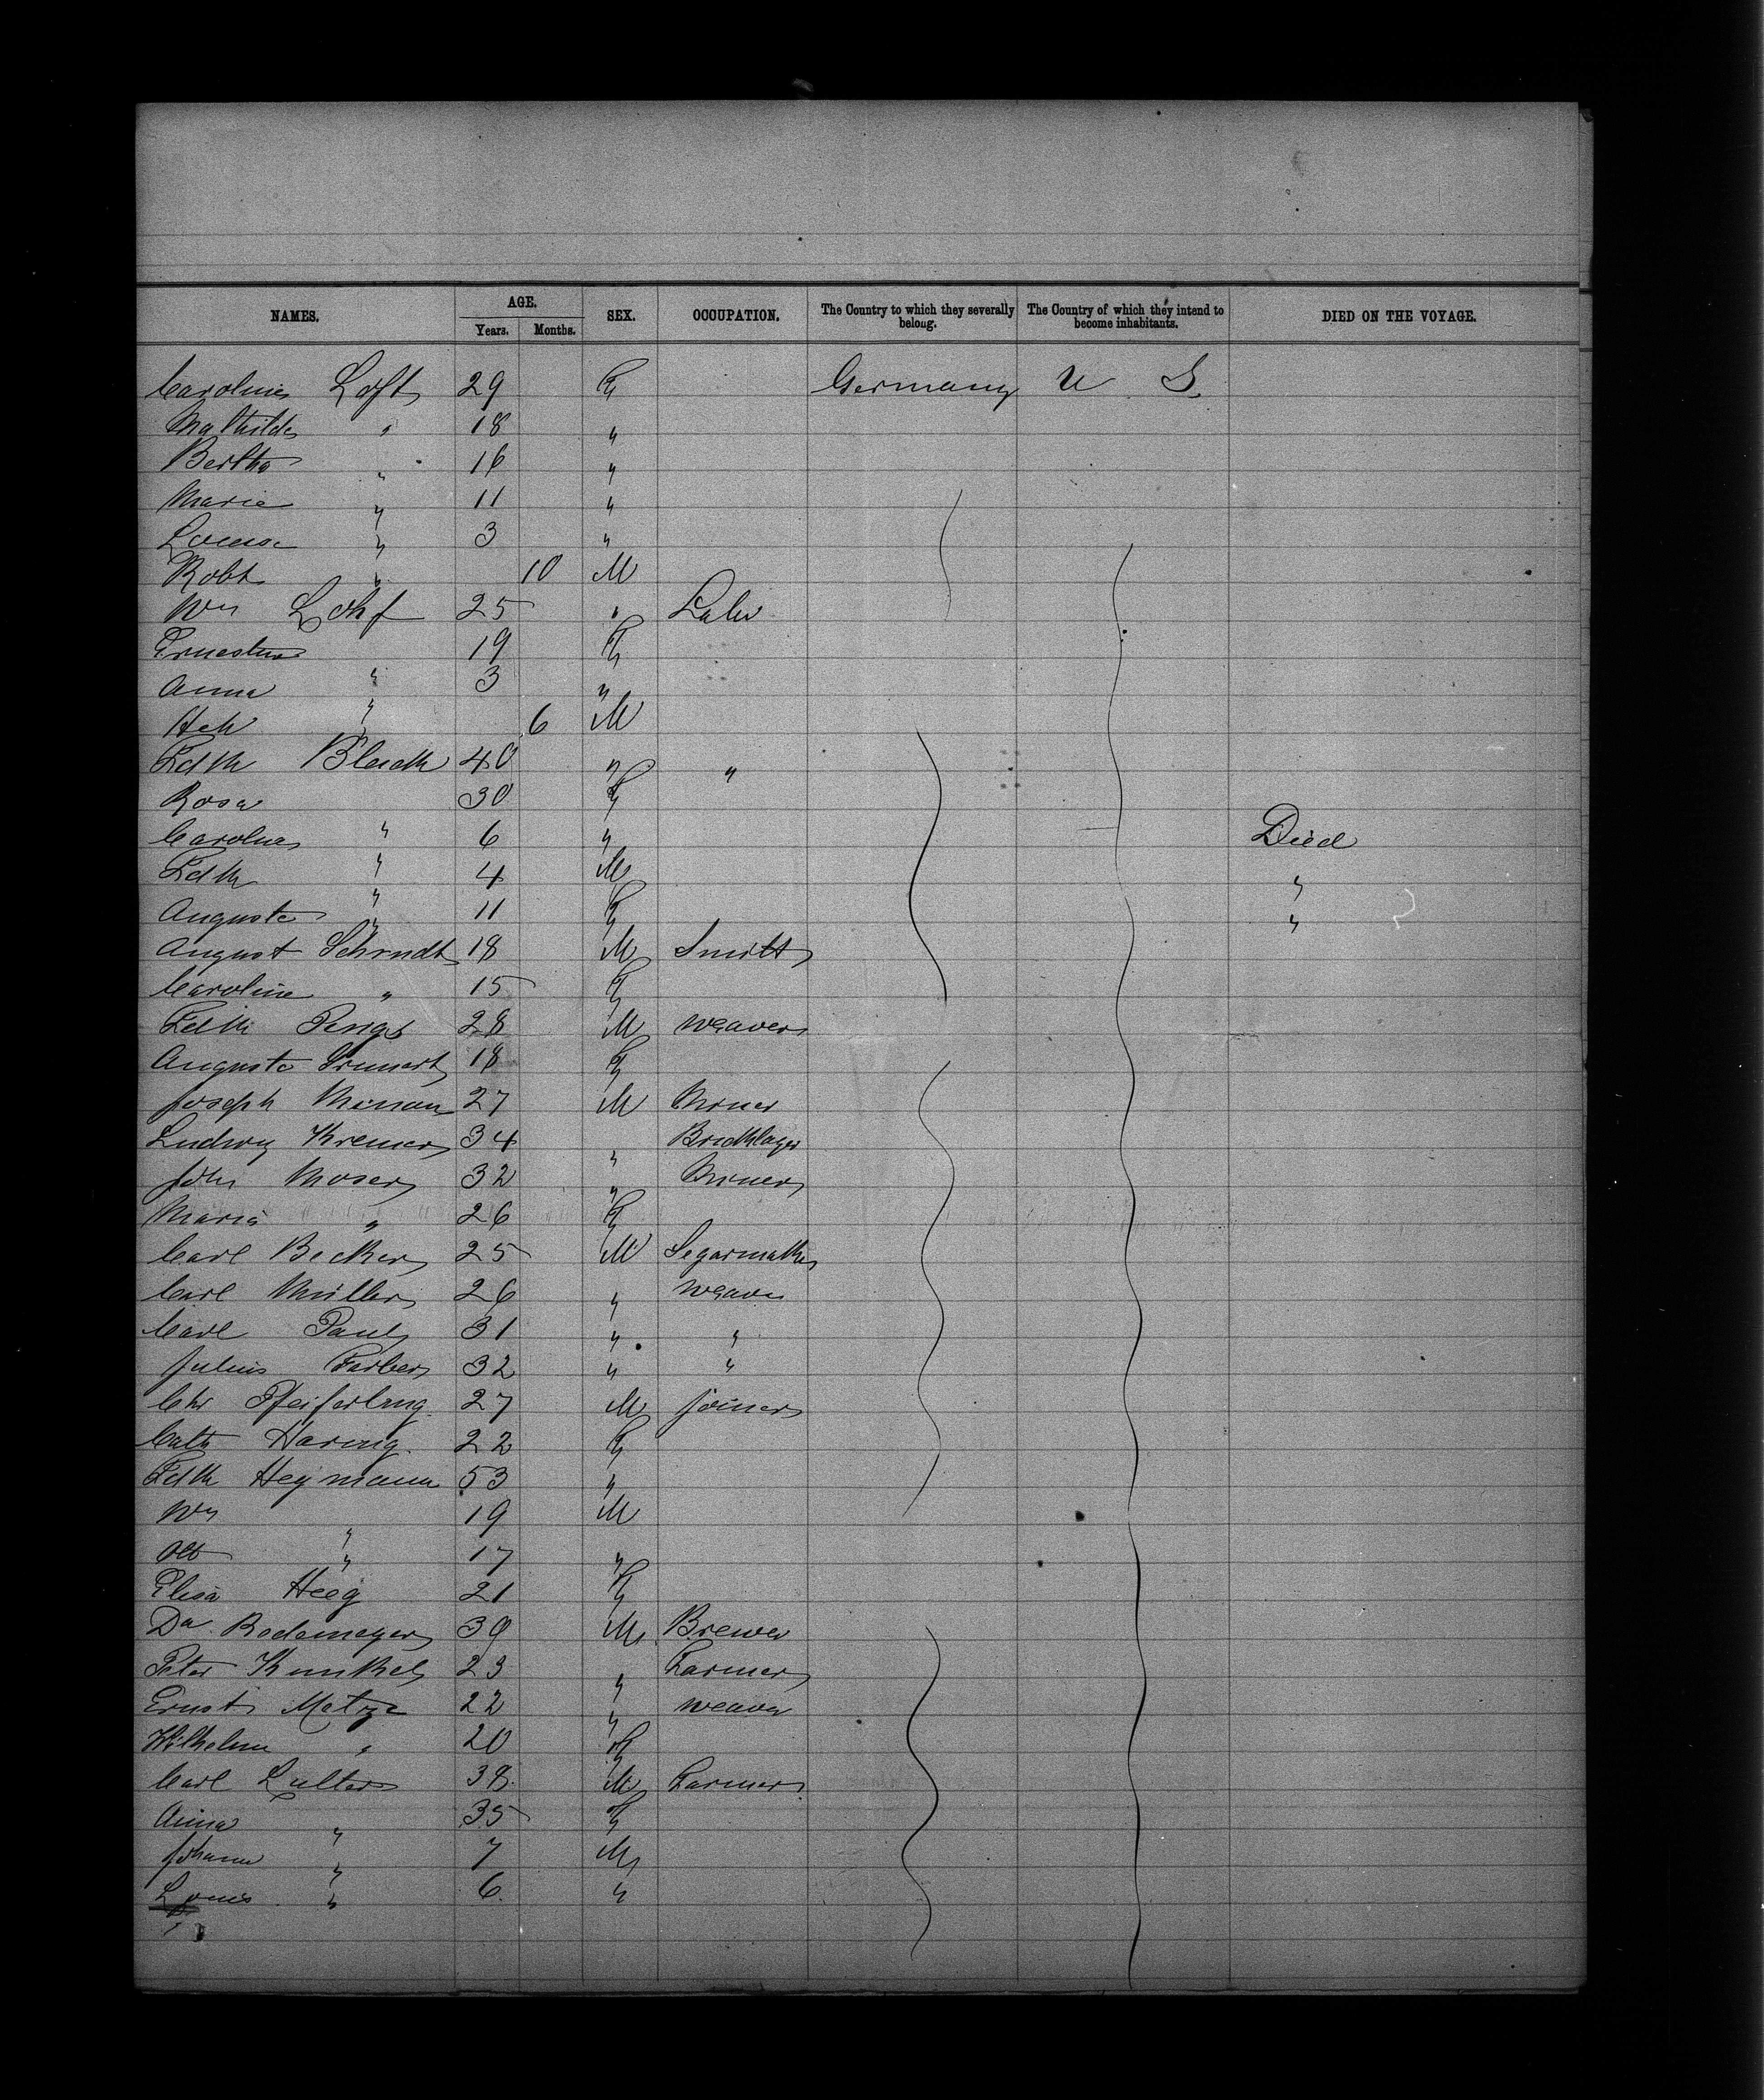 NAMES. AGE. SEX. OCCUPATION. The Country to which they severally belong. The Country of which they intend to become inhabitants. DIED ON THE VOYAGE.
Years. Months.
Caroline Loft 29 F Germany U S
Mathilde " 18 "
Bertha " 16 "
Marie " 11 "
Louisa " 3 "
Robt " 10 M
Wm Lohf 25 "
Ernestine 19 F
Anna " 3 "
Hch " 6 M
Fdk 40 " "
Rosa 30 F
Caroline " 6 " Died
Fdk " 4 M "
Auguste " 11 F "
August Schmdt 18 M Smith
Caroline " 15 F
28 M Weaver
Auguste 18 F
Joseph 27 M Miner
Ludwig Kremer 34 " Bricklayer
John Moser 32 " Miner
Maria " 26 F
Carl Becker 25 M Segarmaker
Carl Müller 26 " Weaver
Carl Paul 31 " "
Julius Farber 32 " "
Chr Pfeiferling 27 M Joiner
Cath Haring 22 F
Fdk Heymann 53 "
Wm " 19 M
Otto " 17 "
Elisa Heeg 21 F
Da. Rodemeyer 39 M Brewer
Peter Kunkel 23 " Farmer
Ernst Metze 22 " Weaver
Wilhelm " 20 F
Carl Lulters 38 M Farmer
Anna " 35 F
Johann " 7 M
Louis " 6 "